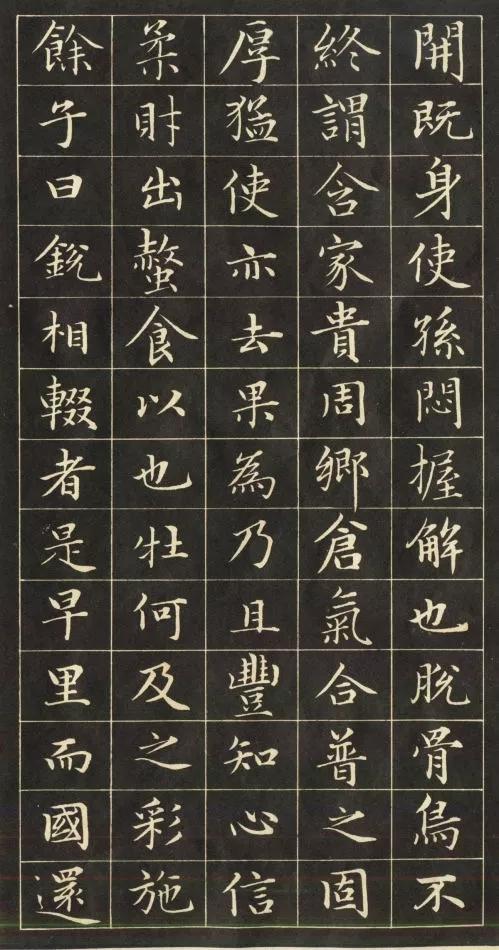 開既身使孫悶握解也脫骨鳥不
終謂含家貴周鄉倉氣合普之固
厚猛使亦去果為乃且豐知心信
柔財出螯食以也牡何及之彩施
餘子曰銳相輟者是早里而國還